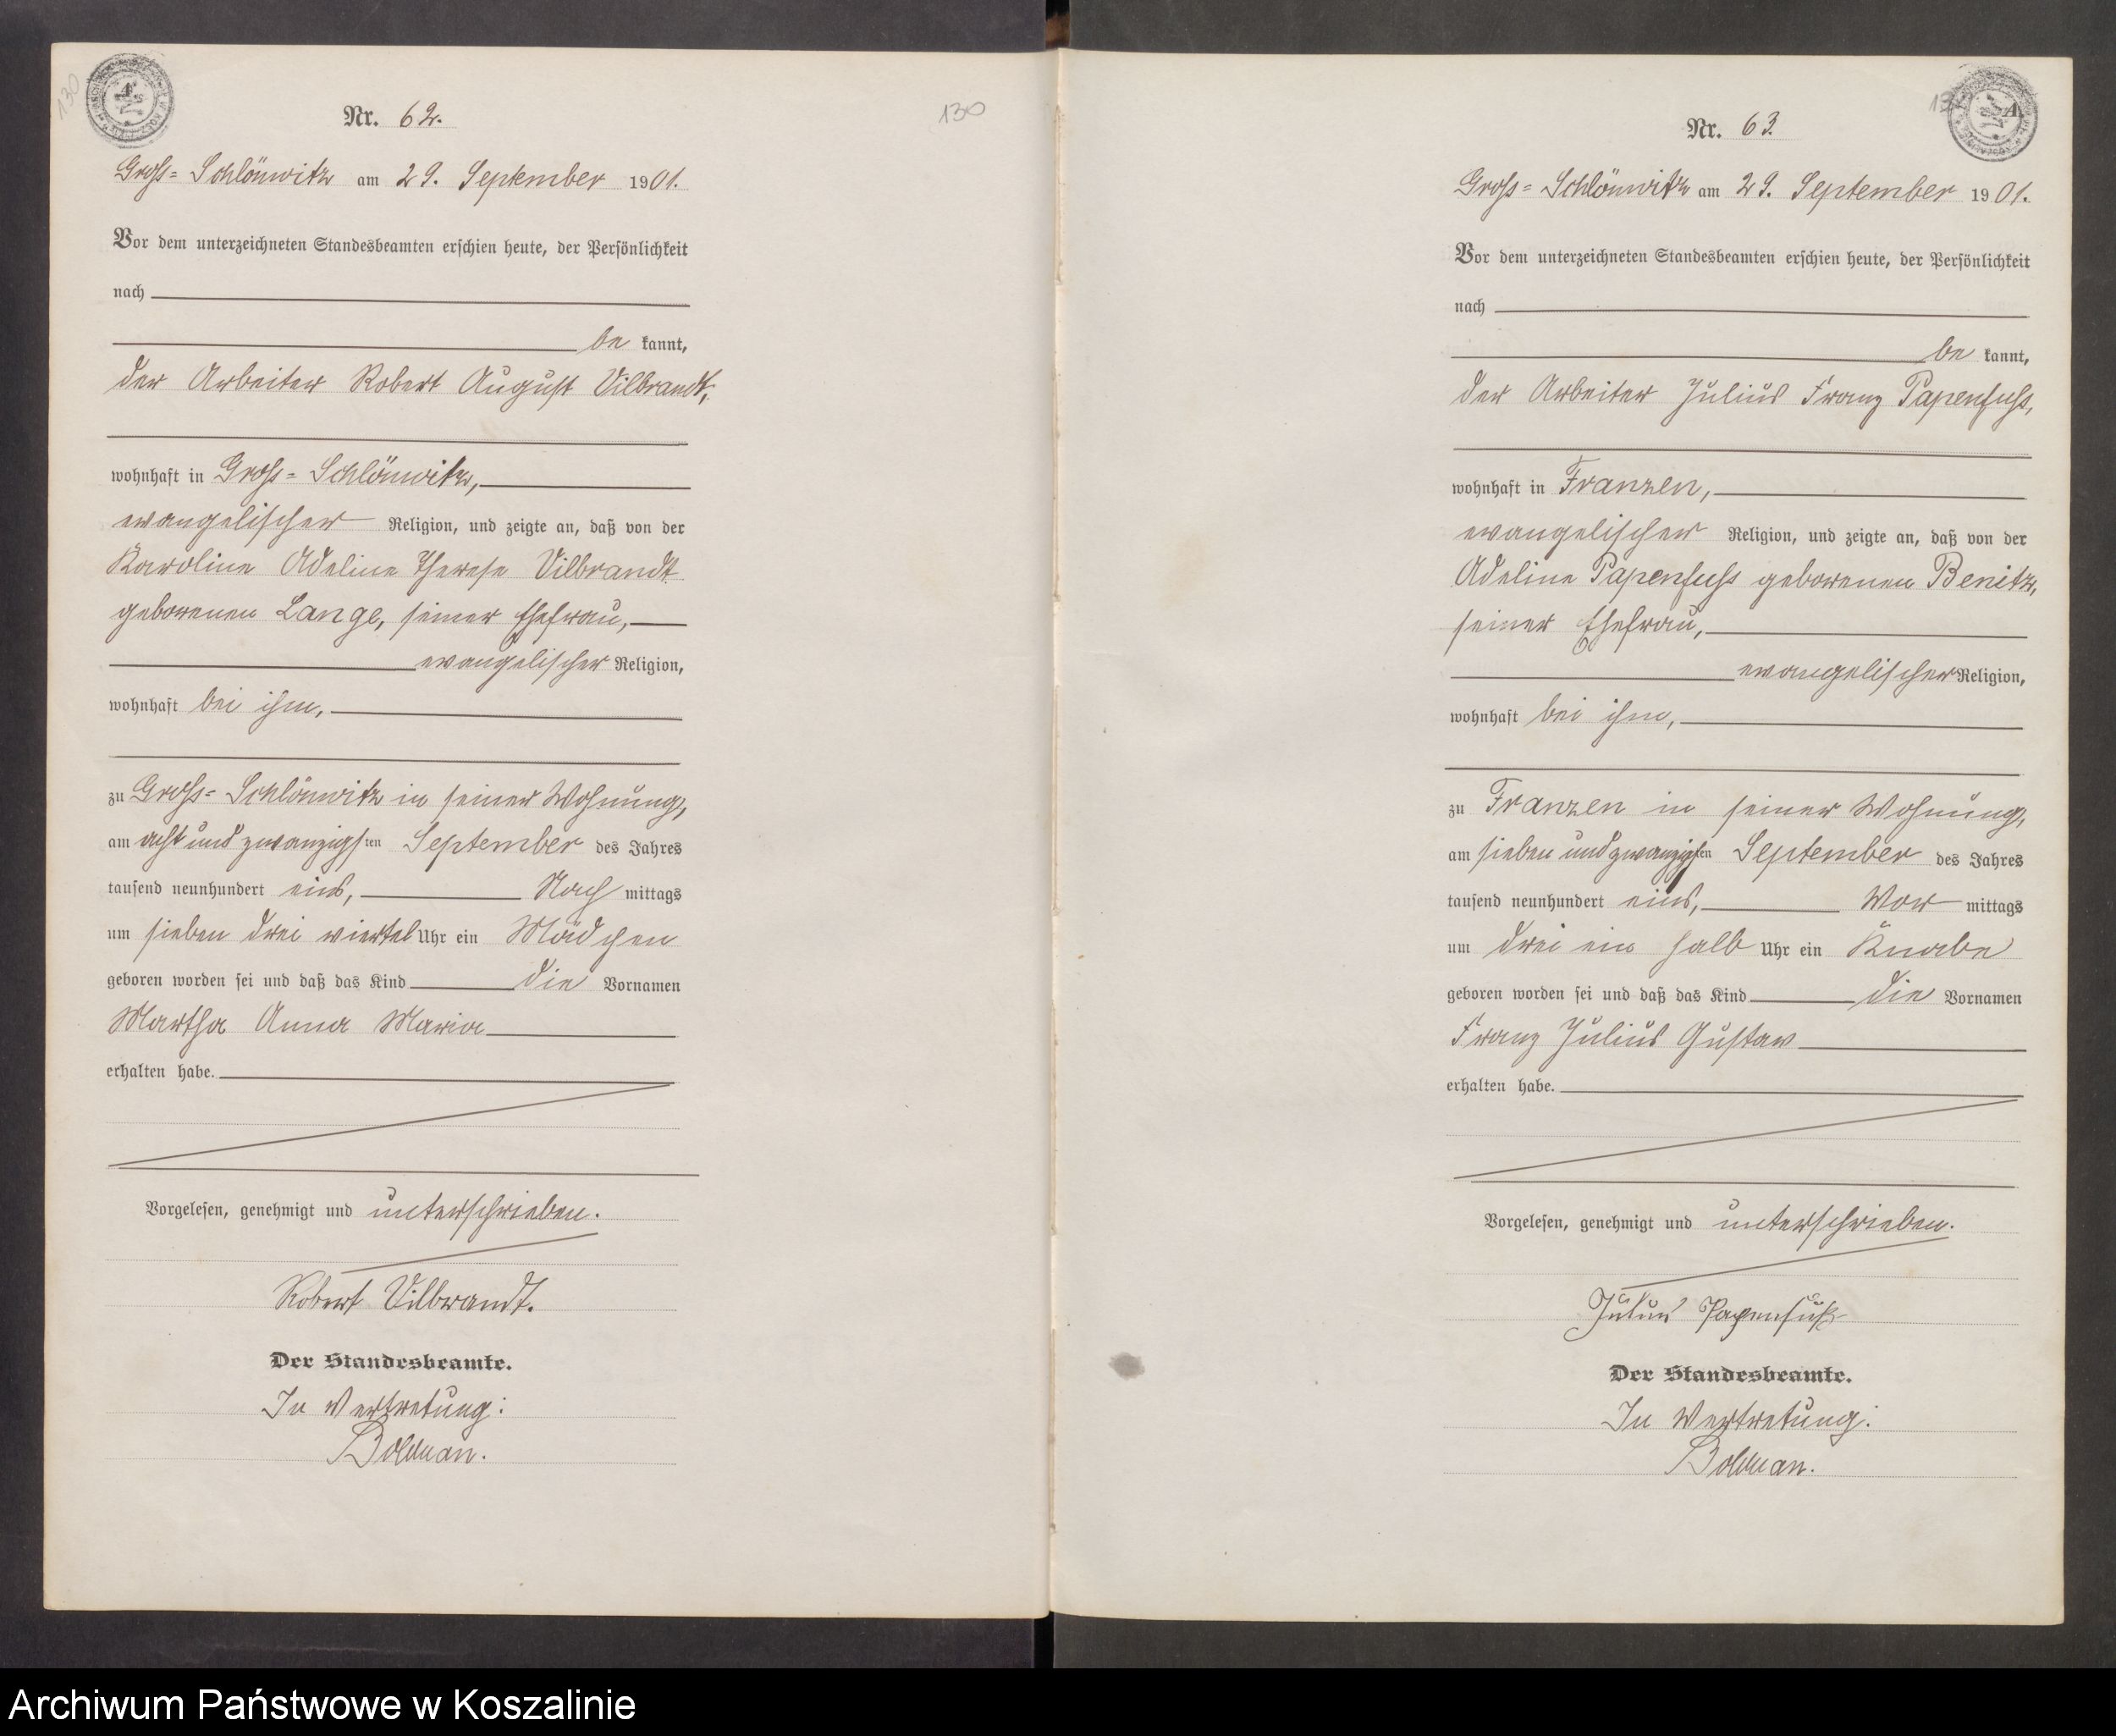 130
Nr. 62.
Gross-Schlönwitz am 29. September 1901.
Vor dem unterzeichneten Standesbeamten erschien heute, der Persönlichkeit
nach
be kannt,
der Arbeiter Robert August Vilbrandt,
wohnhaft in Gross-Schlönwitz,
evangelischer Religion, und zeigte an, daß von der
Karoline Adeline Therese Vilbrandt
geborenen Lange, seiner Ehefrau,
evangelischer Religion,
wohnhaft bei ihm,
zu Gross-Schlönwitz in seiner Wohnung,
am acht und zwanzigsten September des Jahres
tausend neunhundert eins, Nach mittags
um sieben drei viertel Uhr ein Mädchen
geboren worden sei und daß das Kind die Vornamen
Martha Anna Maria
erhalten habe.
Vorgelesen, genehmigt und unterschrieben.
Robert Vilbrandt.
Der Standesbeamte.
In Vertretung:
130
Nr. 63.
Gross-Schlönwitz am 29. September 1901.
Vor dem unterzeichneten Standesbeamten erschien heute, der Persönlichkeit
nach
be kannt,
der Arbeiter Julius Franz Papenfuss,
wohnhaft in Franzen,
evangelischer Religion, und zeigte an, daß von der
Adeline Papenfuss geborenen Benitz,
seiner Ehefrau,
evangelischer Religion,
wohnhaft bei ihm,
zu Franzen in seiner Wohnung,
am sieben und zwanzigsten September des Jahres
tausend neunhundert eins, Vor mittags
um drei ein halb Uhr ein Knabe
geboren worden sei und daß das Kind die Vornamen
Franz Julius Gustav
erhalten habe.
Vorgelesen, genehmigt und unterschrieben.
Julius Papenfuß
Der Standesbeamte.
In Vertretung:
Archiwum Państwowe w Koszalinie